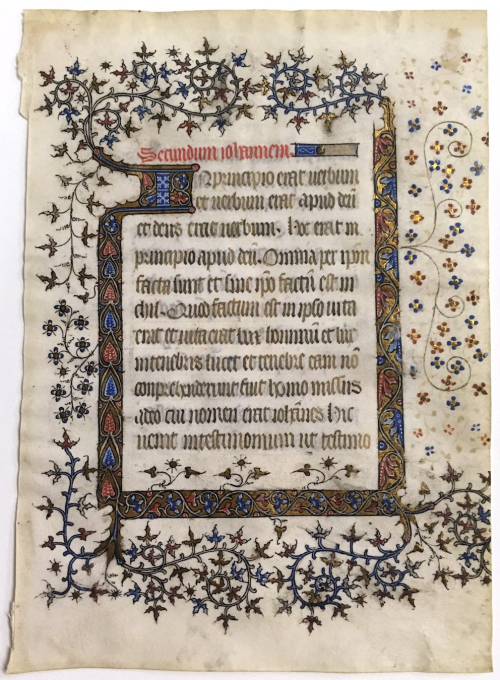 Secundum iohannem.
IN principio erat uerbum
et uerbum erat apud deū
et deus erat uerbum. hoc erat in
principio apud deū. Omnia per ipm̄
facta sunt et sine ipō factū est ni
chil. Quod factum est in ipso uita
erat et uita erat lux hominū et lux
in tenebris lucet et tenebre eam nō
comprehenderunt fuit homo missus
a deo cui nomen erat iohānes hic
uenit in testimonium ut testimo